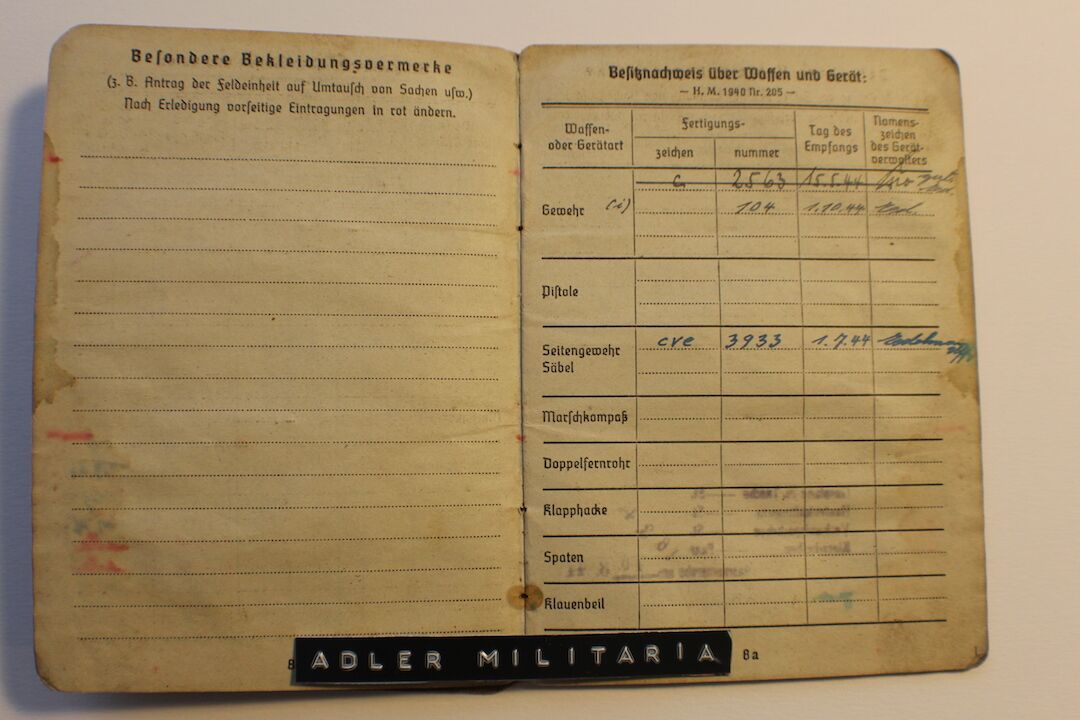 Besondere Bekleidungsvermerke
(z. B. Antrag der Feldeinheit auf Umtausch von Sachen usw.)
Nach Erledigung vorseitige Eintragungen in rot ändern.
Besitznachweis über Waffen und Gerät:
— H. M. 1940 Nr. 205 —
Waffen- oder Gerätart
Fertigungs-
zeichen
nummer
Tag des Empfangs
Namens- zeichen des Gerät- verwalters
2563 15.5.44
Gewehr (i) 104 1.10.44
Pistole
Seitengewehr cve 3933 1.7.44
Säbel
Marschkompaß
Doppelfernrohr
Klapphacke
Spaten
Klauenbeil
8a
ADLER MILITARIA